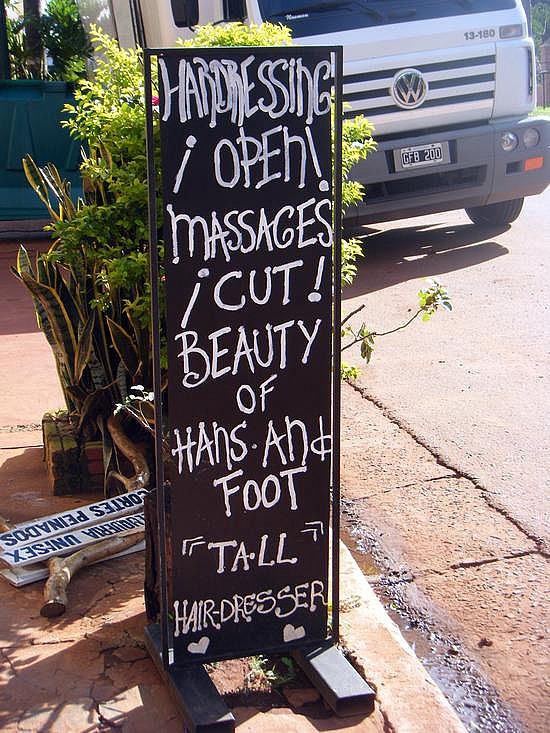 HARDRESSING
¡OPEN!
MASSAGES
¡CUT!
BEAUTY
OF
HANS·AND
FOOT
"TA·LL"
HAIR-DRESSER
13-180
GFB 200
UNISEX
CORTES PEINADOS